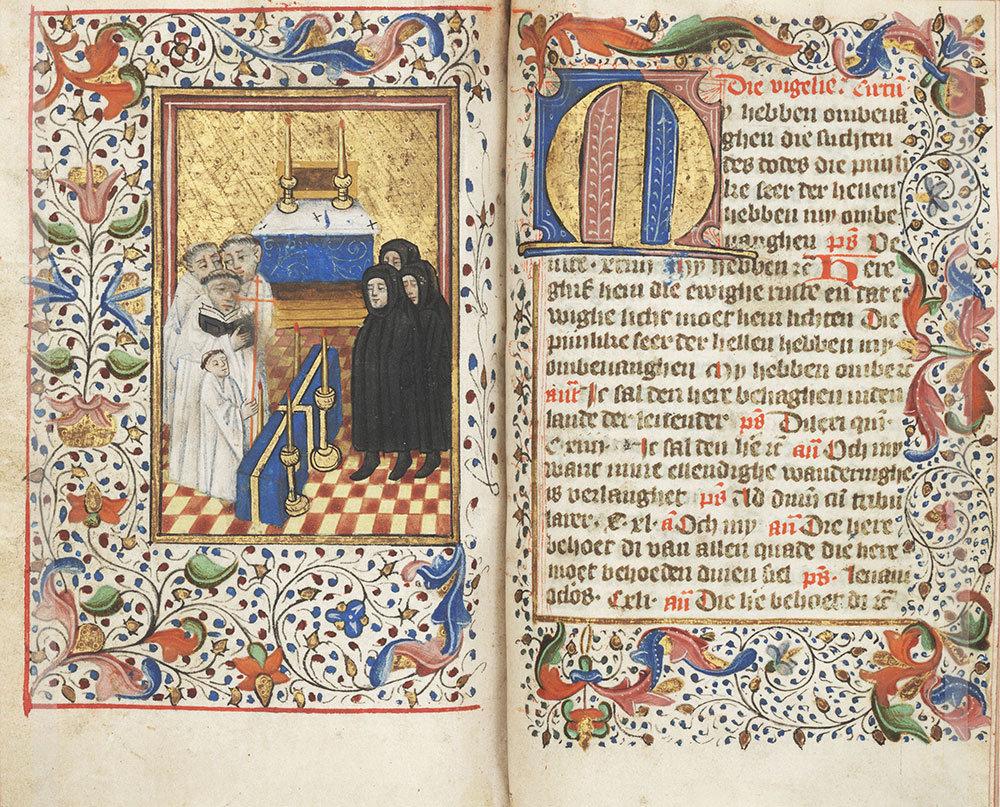 Die vigelie. Luitū
My hebben ombeua
ghen die suchten
des todes die pinli
ke seer der hellen
hebben my ombe
uanghen ps Ve
nite. xciiij My hebben ꝛc Here
ghif hem die ewighe ruste en dat e
wighe licht moet hem lichten Die
pinlike seer der hellen hebben my
ombeuanghen My hebben ombeuā
añt Ic sal den here behaghen inden
lande der leuender ps Dilexi quō
Cxiiij. Ic sal den he ꝛc añ Och my
want mine ellendighe wanderinghe
is verlanghet ps Ad dnm cū tribu
larer. C xix añ Och my añ Die here
behoet di van allen quade die here
moet behoeden dinen siel ps. Leuaui
oclos. Cxx. añ Die he behoet di ꝛc